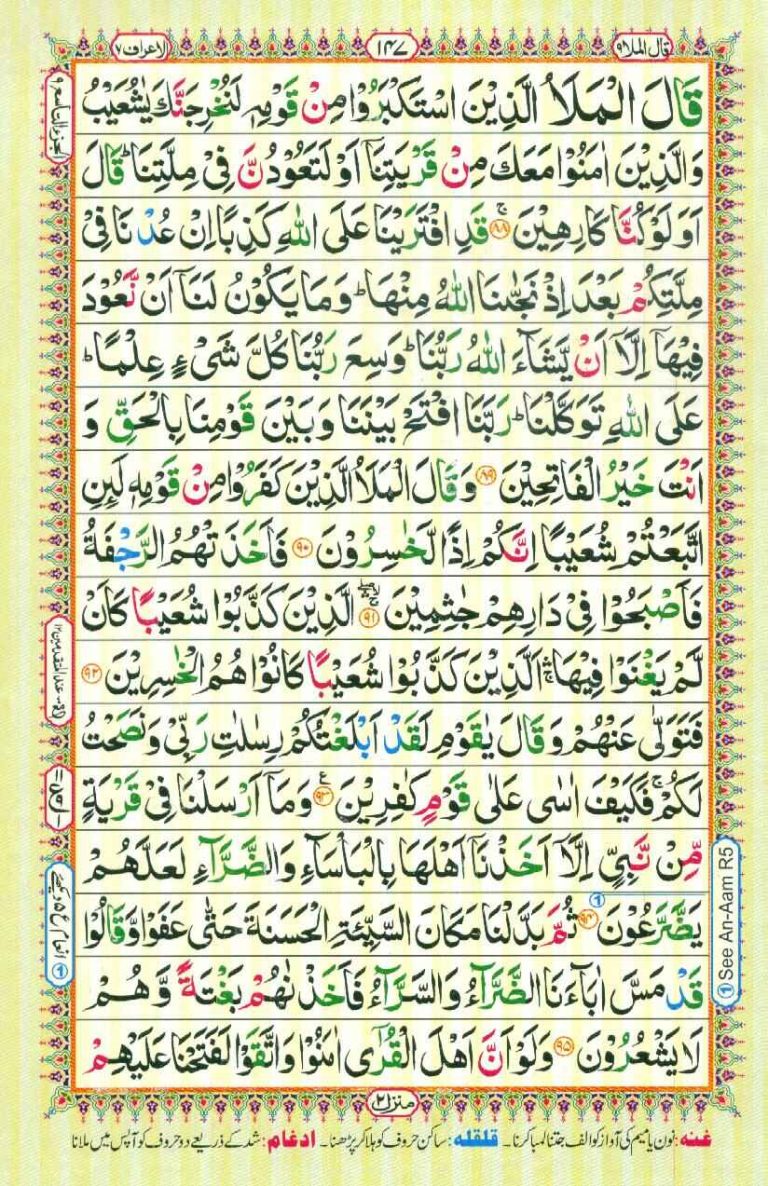 قال الملا ٩
١٤٧
الاعراف ٧
قَالَ الْمَلَاُ الَّذِيْنَ اسْتَكْبَرُوْا مِنْ قَوْمِهٖ لَنُخْرِجَنَّكَ يٰشُعَيْبُ
وَالَّذِيْنَ اٰمَنُوْا مَعَكَ مِنْ قَرْيَتِنَاۤ اَوْ لَتَعُوْدُنَّ فِيْ مِلَّتِنَا ؕ قَالَ
اَوَلَوْ كُنَّا كَارِهِيْنَ ۚ ﴿٨٨﴾ قَدِ افْتَرَيْنَا عَلَى اللّٰهِ كَذِبًا اِنْ عُدْنَا فِيْ
مِلَّتِكُمْ بَعْدَ اِذْ نَجّٰىنَا اللّٰهُ مِنْهَا ؕ وَمَا يَكُوْنُ لَنَاۤ اَنْ نَّعُوْدَ
فِيْهَاۤ اِلَّاۤ اَنْ يَّشَآءَ اللّٰهُ رَبُّنَا ؕ وَسِعَ رَبُّنَا كُلَّ شَيْءٍ عِلْمًا ؕ
عَلَى اللّٰهِ تَوَكَّلْنَا ؕ رَبَّنَا افْتَحْ بَيْنَنَا وَبَيْنَ قَوْمِنَا بِالْحَقِّ وَ
اَنْتَ خَيْرُ الْفَاتِحِيْنَ ﴿٨٩﴾ وَقَالَ الْمَلَاُ الَّذِيْنَ كَفَرُوْا مِنْ قَوْمِهٖ لَئِنِ
اتَّبَعْتُمْ شُعَيْبًا اِنَّكُمْ اِذًا لَّخٰسِرُوْنَ ﴿٩٠﴾ فَاَخَذَتْهُمُ الرَّجْفَةُ
فَاَصْبَحُوْا فِيْ دَارِهِمْ جٰثِمِيْنَ ﴿٩١﴾ الَّذِيْنَ كَذَّبُوْا شُعَيْبًا كَاَنْ
لَّمْ يَغْنَوْا فِيْهَا ۛۚ اَلَّذِيْنَ كَذَّبُوْا شُعَيْبًا كَانُوْا هُمُ الْخٰسِرِيْنَ ﴿٩٢﴾
فَتَوَلّٰى عَنْهُمْ وَقَالَ يٰقَوْمِ لَقَدْ اَبْلَغْتُكُمْ رِسٰلٰتِ رَبِّيْ وَنَصَحْتُ
لَكُمْ ۚ فَكَيْفَ اٰسٰى عَلٰى قَوْمٍ كٰفِرِيْنَ ﴿٩٣﴾ وَمَاۤ اَرْسَلْنَا فِيْ قَرْيَةٍ
مِّنْ نَّبِيٍّ اِلَّاۤ اَخَذْنَاۤ اَهْلَهَا بِالْبَاْسَآءِ وَالضَّرَّآءِ لَعَلَّهُمْ
يَضَّرَّعُوْنَ ﴿٩٤﴾ ① ثُمَّ بَدَّلْنَا مَكَانَ السَّيِّئَةِ الْحَسَنَةَ حَتّٰى عَفَوْا وَّقَالُوْا
قَدْ مَسَّ اٰبَآءَنَا الضَّرَّآءُ وَالسَّرَّآءُ فَاَخَذْنٰهُمْ بَغْتَةً وَّهُمْ
لَا يَشْعُرُوْنَ ﴿٩٥﴾ وَلَوْ اَنَّ اَهْلَ الْقُرٰٓى اٰمَنُوْا وَاتَّقَوْا لَفَتَحْنَا عَلَيْهِمْ
① See An-Aam R5
① انعام ع ۵ دیکھئے
منزل ٢
غنه: نون یا میم کی آواز کو الف جتنا لمبا کرنا۔ قلقله: ساکن حروف کو ہلا کر پڑھنا۔ ادغام: شد کے ذریعے دو حروف کو آپس میں ملانا